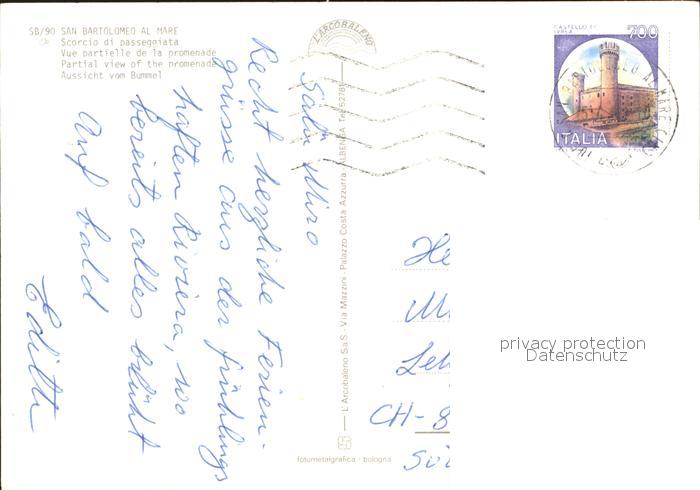 SB/90 SAN BARTOLOMEO AL MARE
Scorcio di passeggiata
Vue partielle de la promenade
Partial view of the promenade
Aussicht vom Bummel
L'ARCOBALENO
CASTELLO DI
IVREA
700
ITALIA
Salü Miro
Recht herzliche Ferien-
grüsse aus der frühlings
haften Riviera, wo
bereits alles blüht
Auf bald
Edith
— L'Arcobaleno S.a.S. - Via Mazzini - Palazzo Costa Azzurra - ALBENGA Tel. 52781 —
fotometalgrafica - bologna
He
M
Le
CH-8
privacy protection
Datenschutz